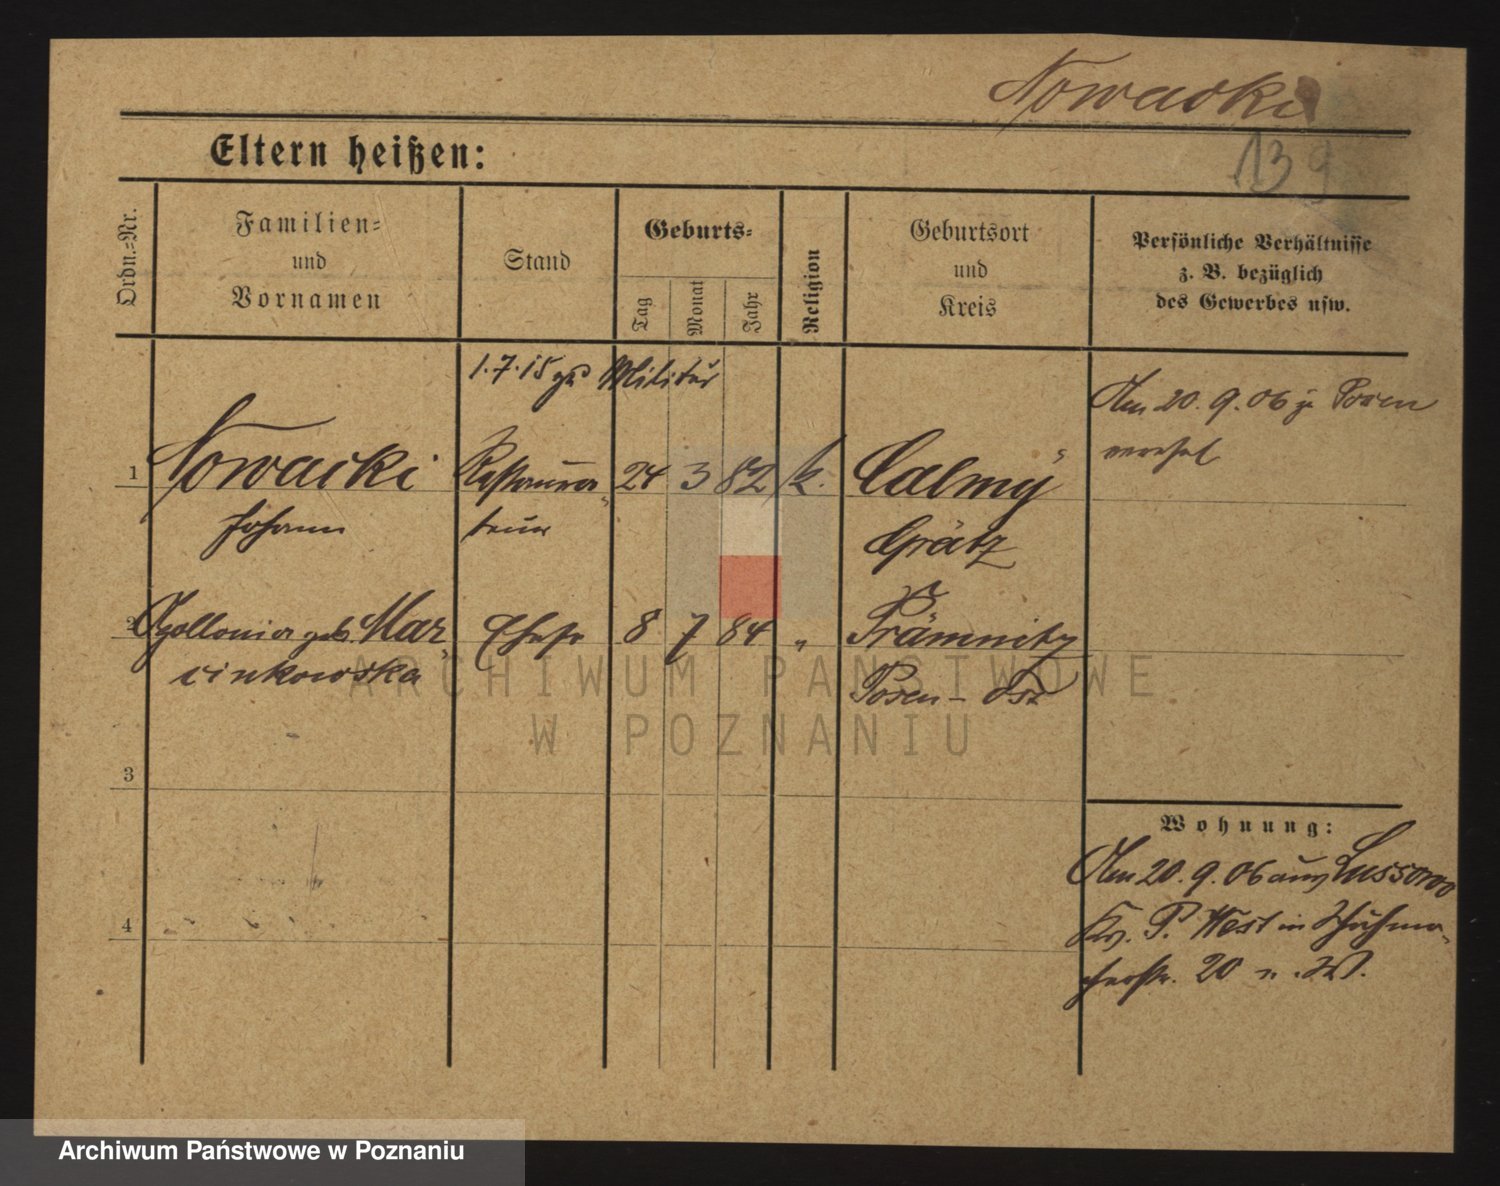 Nowacki
139
Eltern heißen:
Ordn.=Nr.
Familien=
und
Vornamen
Stand
Geburts=
Tag
Monat
Jahr
Religion
Geburtsort
und
Kreis
Persönliche Verhältnisse
z. B. bezüglich
des Gewerbes usw.
1.7.15 zum Militär
Am 20.9.06 z. Posen
verehel
1 Nowacki Restaura= 24 3 82 k. Calmy
Johann teur Grätz
2 Apollonia geb. Mar= Ehefr 8 7 84 " Krämnitz
cinkowska Posen-Ost
ARCHIWUM PAŃSTWOWE
W POZNANIU
3
Wohnung:
Am 20.9.06 aus Lussowo
Kr. P. West in Schuhma=
cherstr. 20 n. W.
4
Archiwum Państwowe w Poznaniu